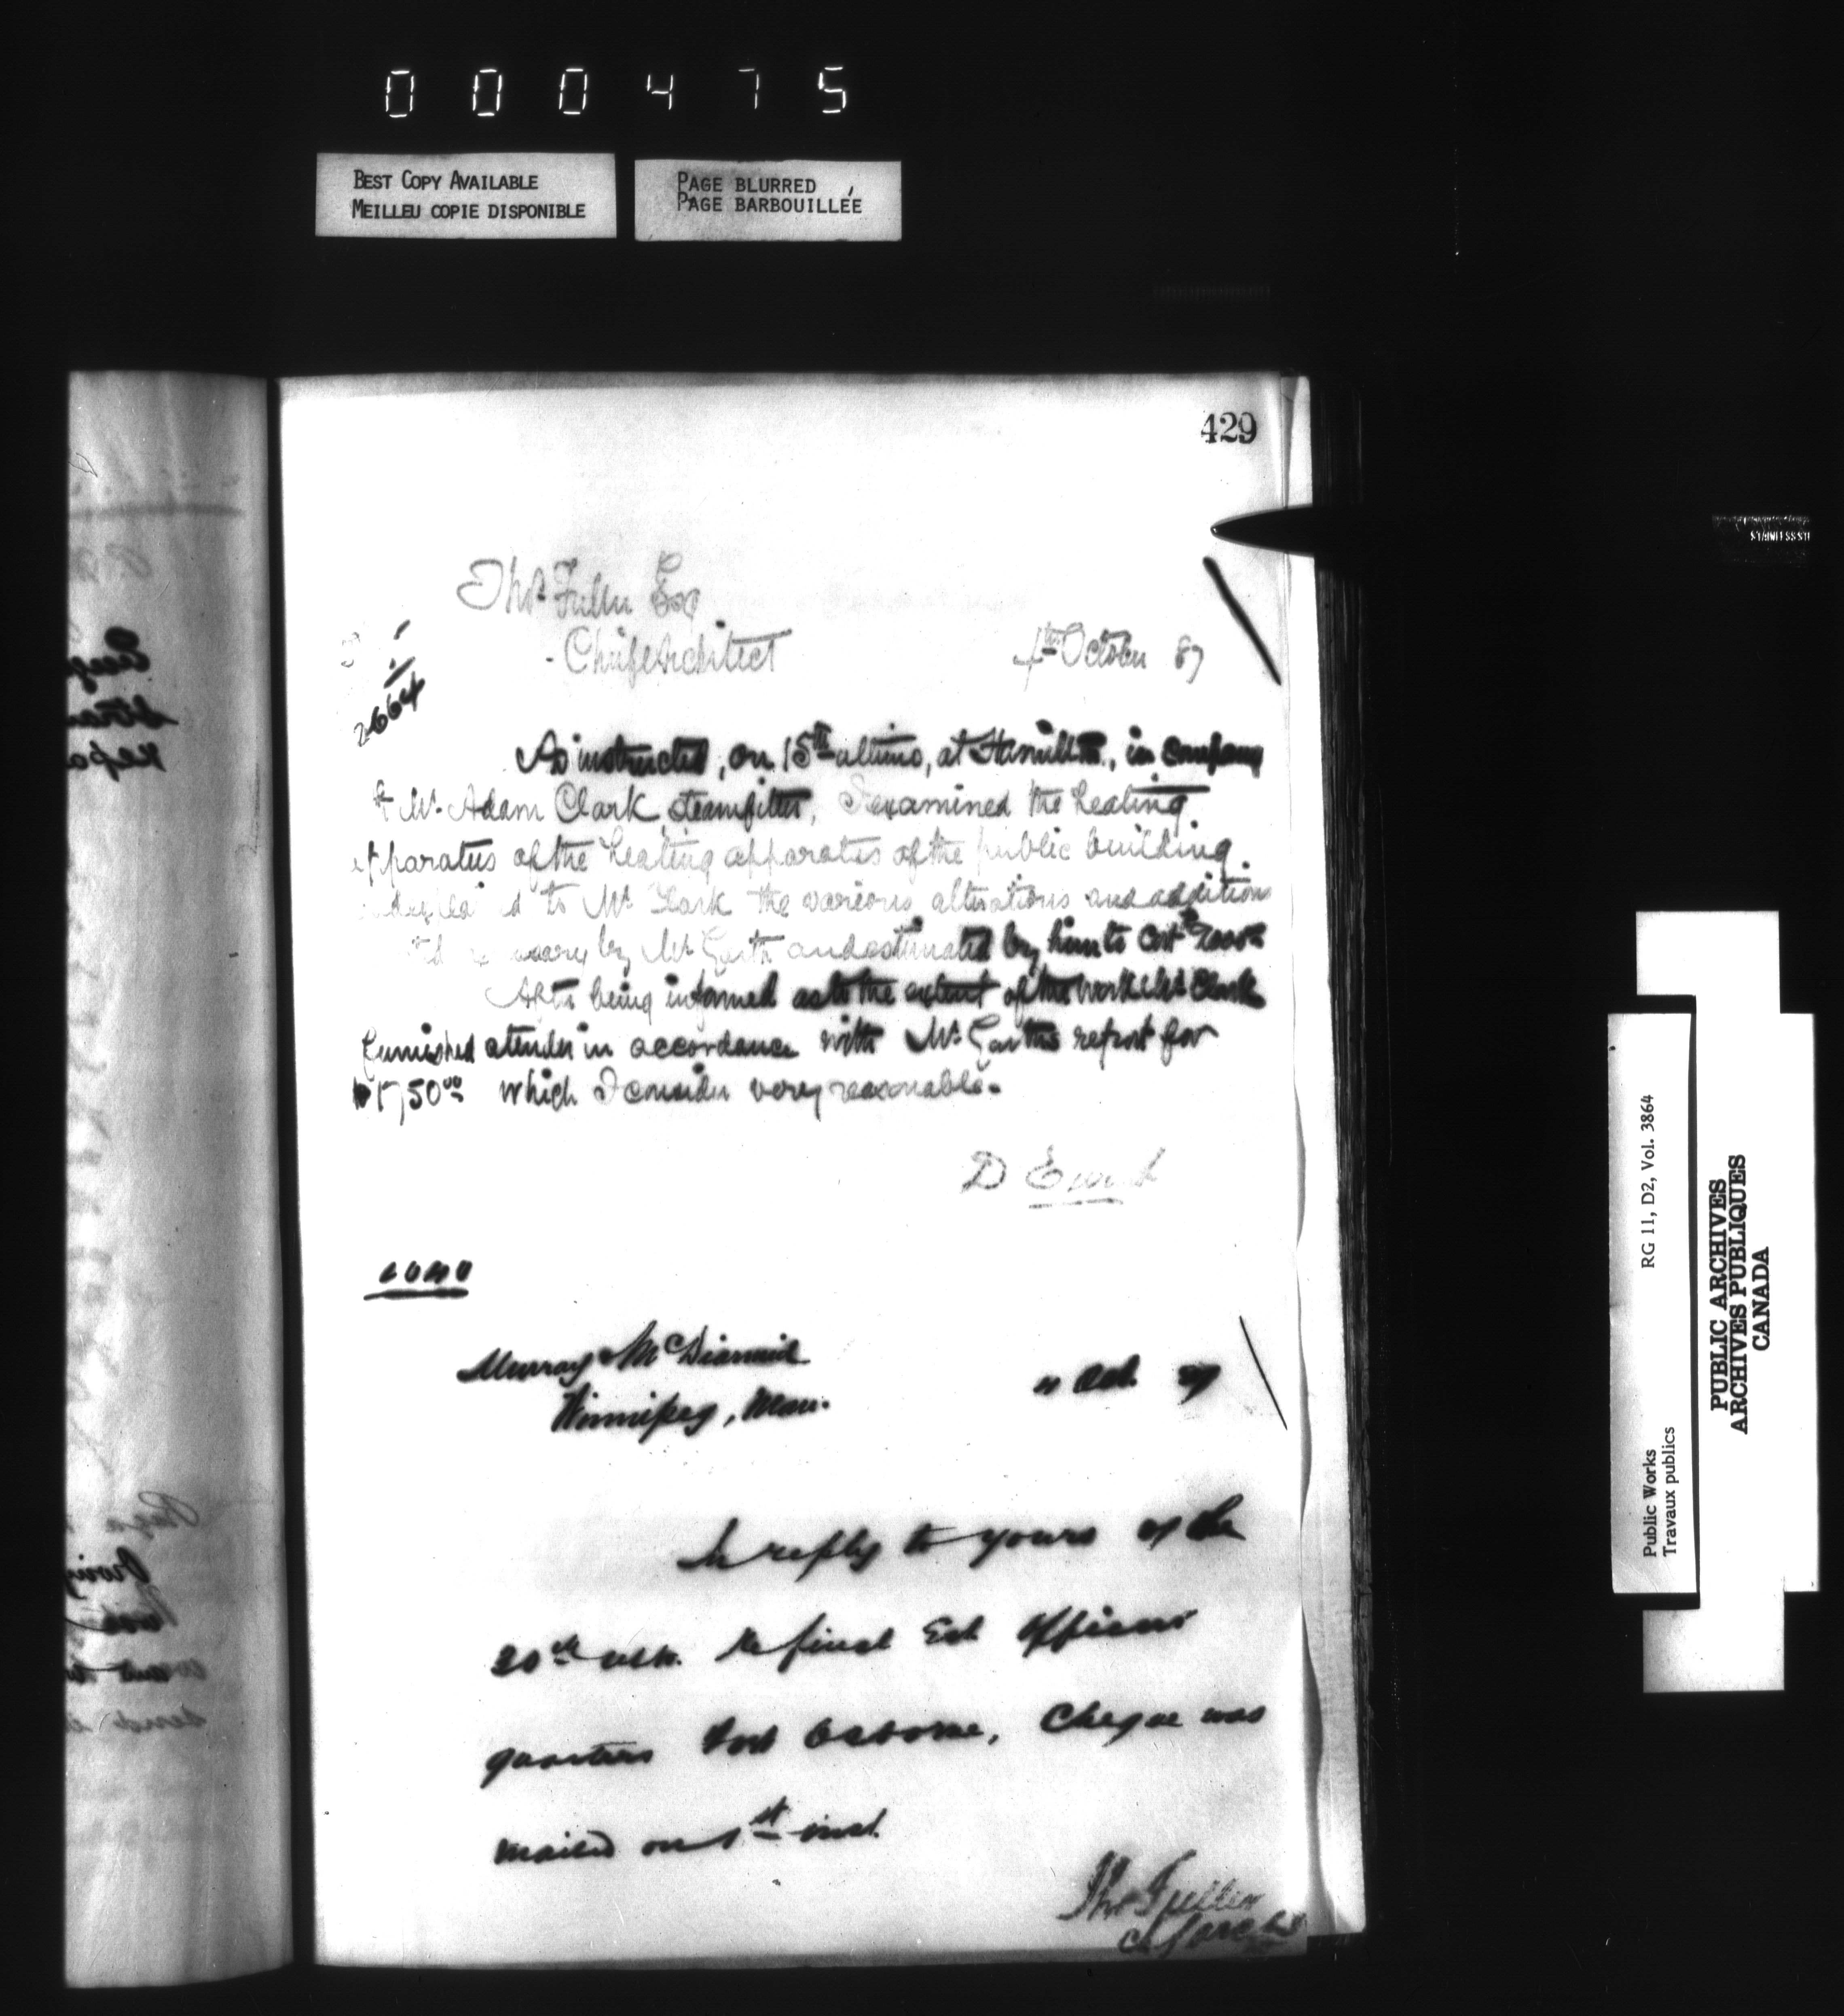 000475
BEST COPY AVAILABLE
MEILLEU COPIE DISPONIBLE
PAGE BLURRED
PAGE BARBOUILLÉE
429
Thos Fuller Esq
Chief Architect
4th October 87
2664
As instructed, on 15th ultimo, at Hamilton, in company
of Mr. Adam Clark steamfitter, I examined the heating
apparatus of the heating apparatus of the public building
to Mr Clark the various alterations and additions
by Mr Garth and estimated by him to cost
After being informed as to the extent of the work Mr Clark
furnished a tender in accordance with Mr Garths report for
$1750.00 which I consider very reasonable.
D Ewart
Murray & McDiarmid
Winnipeg, Man.
Oct. 87
In reply to yours of the
30th ulto. re final Est Officers
quarters Fort Osborne, Cheque was
mailed on 1st inst.
Thos Fuller
Ch Archt
STAINLESS ST
Public Works
Travaux publics
RG 11, D2, Vol. 3864
PUBLIC ARCHIVES
ARCHIVES PUBLIQUES
CANADA